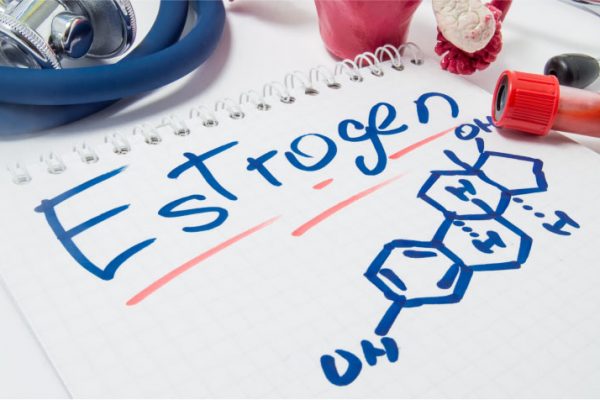 Estrogen
OH
H
H
H
OH